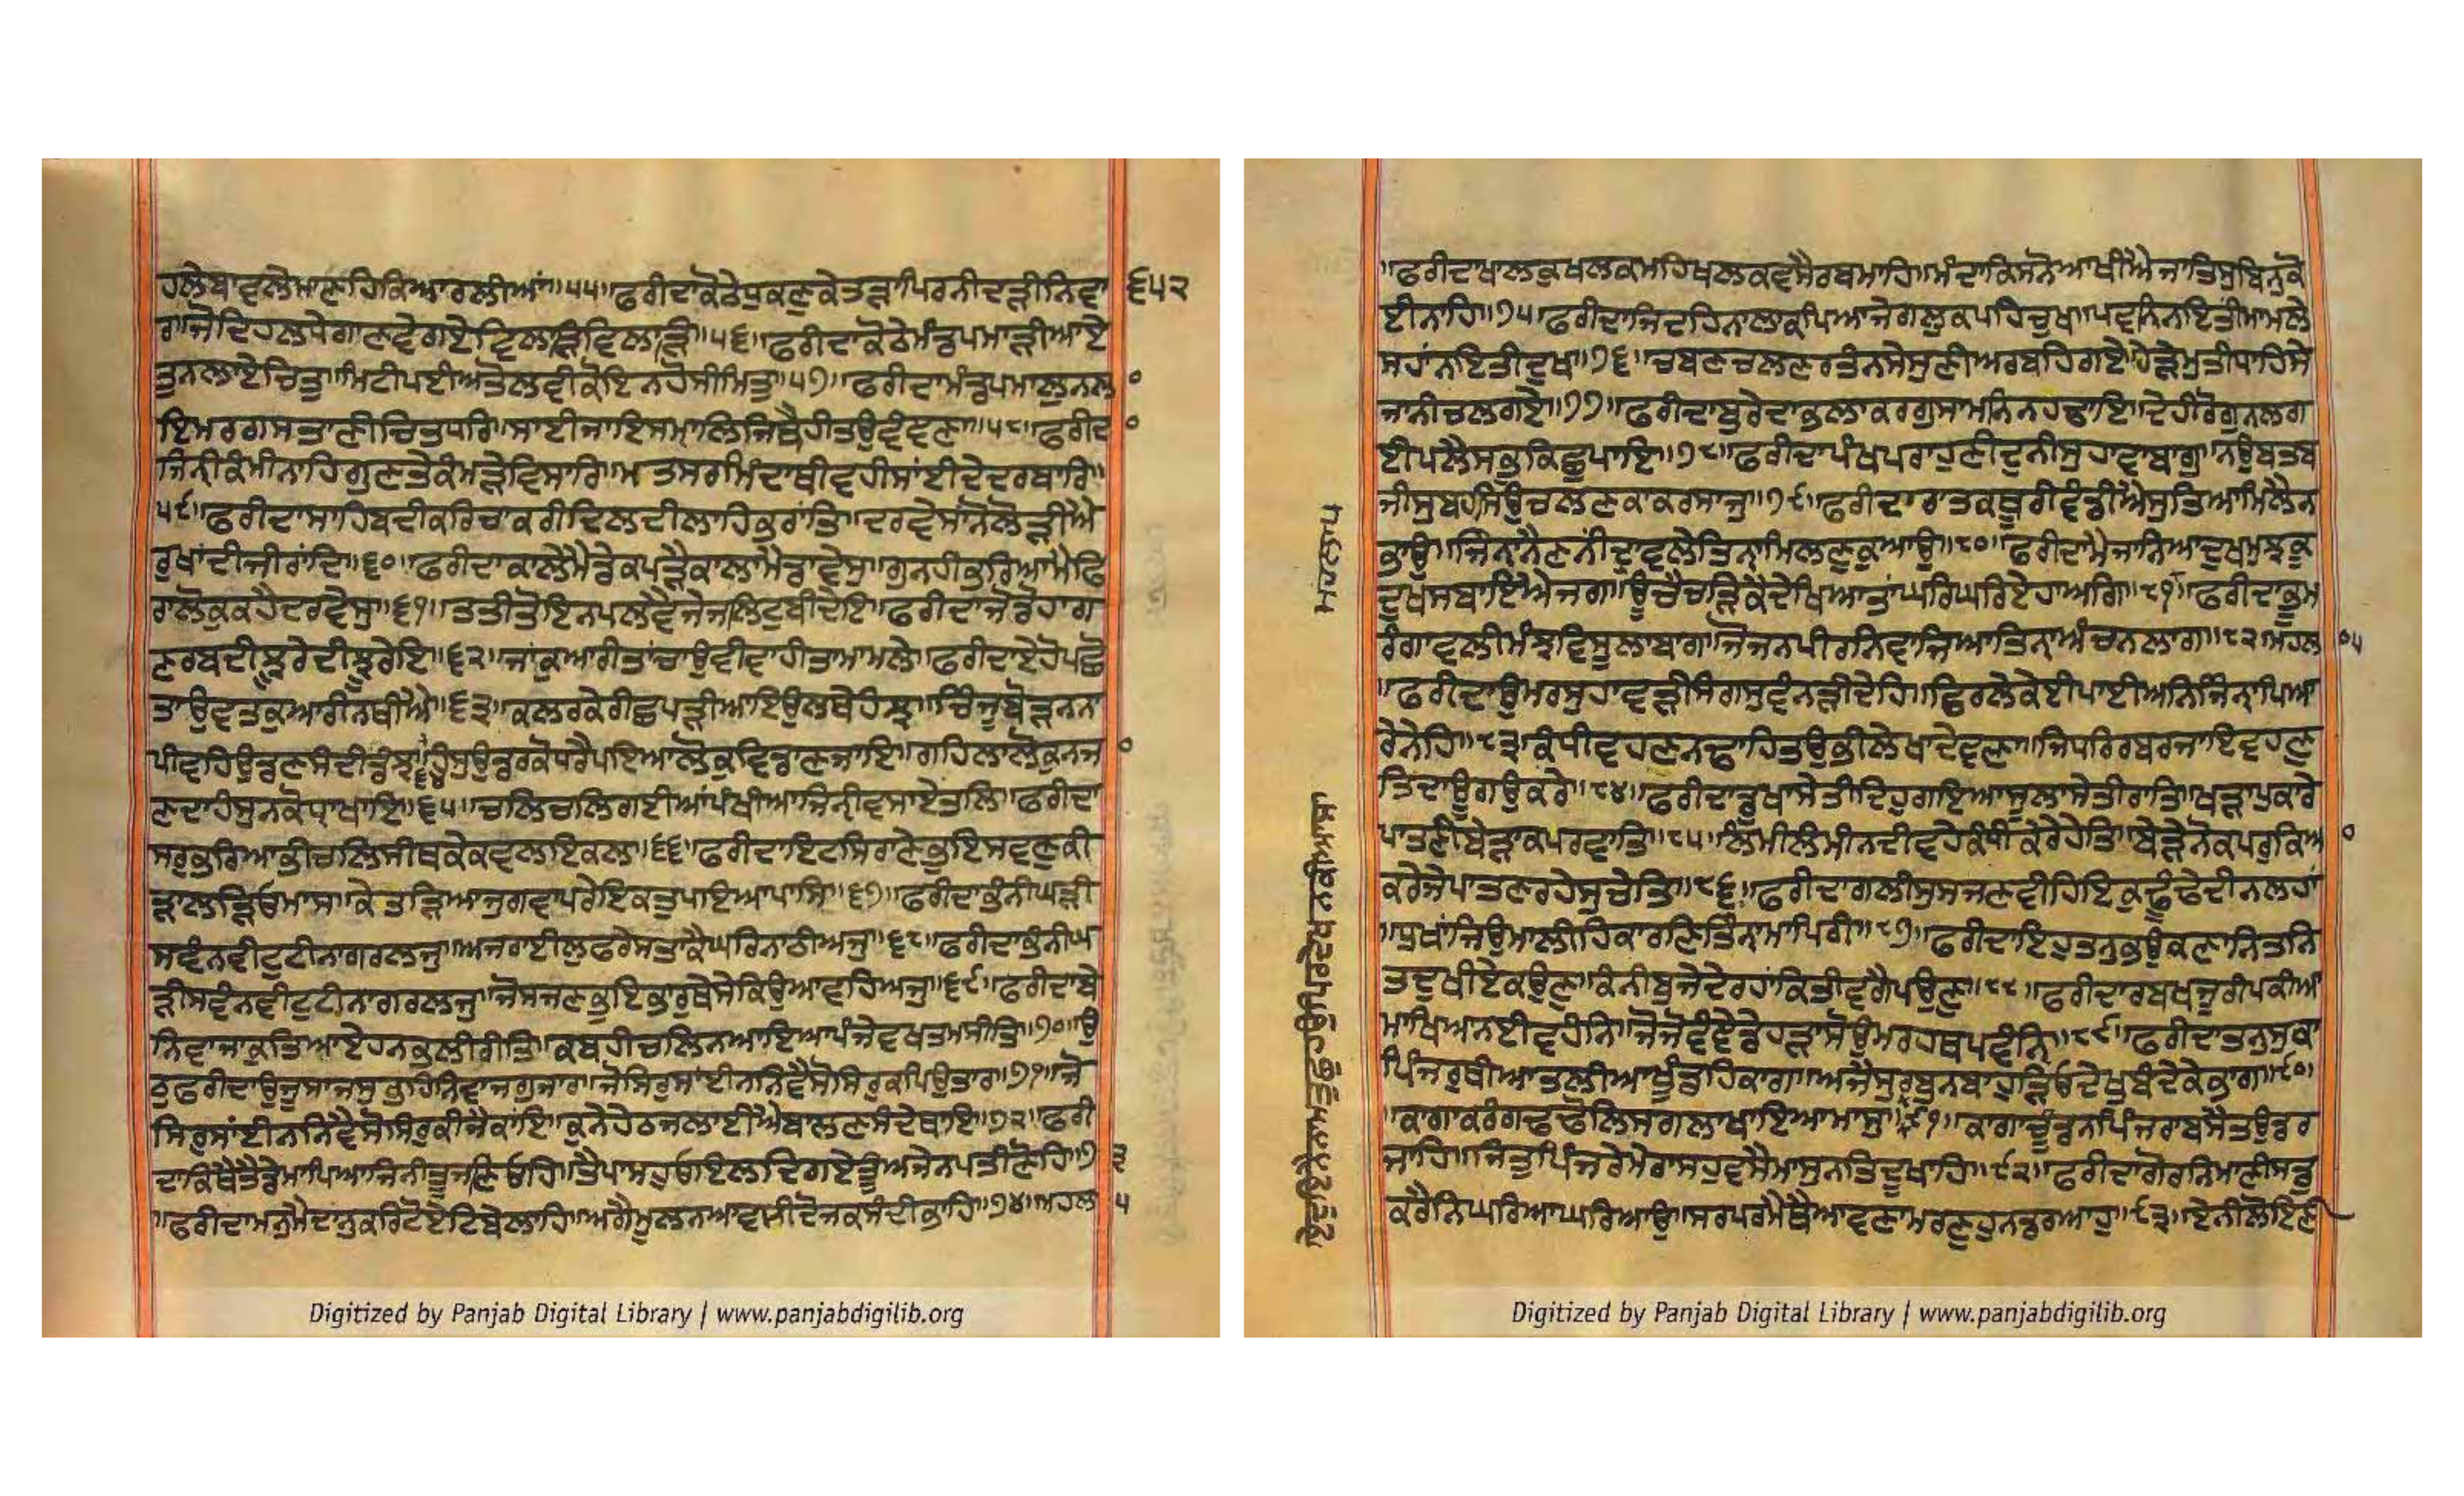 ਹਲੇਬਾਵਲੇਮਾਣਹਿਕਿਆਰਲੀਆਂ॥੫੫॥ਫਰੀਦਾਕੋਠੇਧੁਕਣੁਕੇਤੜਾਪਿਰਨੀਦੜੀਨਿਵਾ ੬੫੨
ਰਿ॥ਜੋਦਿਹਲਧੇਗਾਣਵੇਗਏਵਿਲਾੜਿਵਿਲਾੜਿ॥੫੬॥ਫਰੀਦਾਕੋਠੇਮੰਡਪਮਾੜੀਆਏ
ਤੁਨਲਾਏਚਿਤੁ॥ਮਿਟੀਪਈਅਤੋਲਵੀਕੋਇਨਹੋਸੀਮਿਤੁ॥੫੭॥ਫਰੀਦਾਮੰਡਪਮਾਲੁਨਲ ੦
ਇਮਰਗਸਤਾਣੀਚਿਤਧਰਿ॥ਸਾਈਜਾਇਸਮ੍ਹਾਲਿਜਿਥੈਹੀਤਉਵੰਵਣਾ॥੫੮॥ਫਰੀਦ ੦
ਜਿਨੀਕੰਮੀਨਾਹਿਗੁਣਤੇਕੰਮੜੇਵਿਸਾਰਿ॥ਮਤਸਰਮਿੰਦਾਥੀਵਹੀਸਾਂਈਦੇਦਰਬਾਰਿ॥
੫੯॥ਫਰੀਦਾਸਾਹਿਬਦੀਕਰਿਚਾਕਰੀਦਿਲਦੀਲਾਹਿਕੁਰਾਂਤਿ॥ਦਰਵੇਸਾਂਨੋਲੋੜੀਐ
ਰੁਖਾਂਦੀਜੀਰਾਂਦਿ॥੬੦॥ਫਰੀਦਾਕਾਲੇਮੈਡੇਕਪੜੈਕਾਲਾਮੈਡਾਵੇਸੁ॥ਗੁਨਹੀਭਰਿਆਮੈਫਿ
ਰਾਲੋਕੁਕਹੈਦਰਵੇਸੁ॥੬੧॥ਤਤੀਤੋਇਨਪਲਵੈਜੇਜਲਿਟੁਬੀਦੇਇ॥ਫਰੀਦਾਜੋਡੋਹਾਗ
ਣਰਬਦੀਝੂਰੇਦੀਝੂਰੇਇ॥੬੨॥ਜਾਂਕੁਆਰੀਤਾਂਚਾਉਵੀਵਾਹੀਤਾਮਾਮਲੇ॥ਫਰੀਦਾਏਹੋਪਛੋ
ਤਾਉਵਤਕੁਆਰੀਨਥੀਐ॥੬੩॥ਕਲਰਕੇਰੀਛਪੜੀਆਇਉਲਥੇਹੰਝ॥ਚਿੰਜੂਬੋੜਨਨ
ਪੀਵਹਿਉਡਣਸੰਦੀਡੰਝ॥੬੪॥ਹੰਸੁਉਡਰਕੋਧਰੈਪਇਆਲੋਕੁਵਿਡਾਣਜਾਇ॥ਗਹਿਲਾਲੋਕੁਨਜ ੦
ਣਦਾਹੰਸੁਨਕੋਧ੍ਰਾਖਾਇ॥੬੫॥ਚਲਿਚਲਿਗਈਆਂਪੰਖੀਆਜਿਨੀਵਸਾਏਤਲਿ॥ਫਰੀਦਾ
ਸਰੁਭਰਿਆਭੀਚਲਿਸੀਥਕੇਕਵਲਇਕਲਾ॥੬੬॥ਫਰੀਦਾਇਟਸਿਰਾਣੇਭੁਇਸਵਣੁਕੀ
ੜਾਲੜਿਓਮਾਸ॥ਕੇਤੜਿਆਜੁਗਵਾਪਰੇਇਕਤੁਪਇਆਪਾਸਿ॥੬੭॥ਫਰੀਦਾਭੰਨੀਘੜੀ
ਸਵੰਨਵੀਟੁਟੀਨਾਗਰਲਜੁ॥ਅਜਰਾਈਲੁਫਰੇਸਤਾਕੈਘਰਿਨਾਠੀਅਜੁ॥੬੮॥ਫਰੀਦਾਭੰਨੀਘ
ੜੀਸਵੰਨਵੀਟੁਟੀਨਾਗਰਲਜੁ॥ਜੋਸਜਣਭੁਇਭਾਰੁਥੇਸੇਕਿਉਆਵਹਿਅਜੁ॥੬੯॥ਫਰੀਦਾਬੇ
ਨਿਵਾਜਾਕੁਤਿਆਏਹਨਭਲੀਰੀਤਿ॥ਕਬਹੀਚਲਿਨਆਇਆਪੰਜੇਵਖਤਮਸੀਤਿ॥੭੦॥ਉ
ਠੁਫਰੀਦਾਉਜੂਸਾਜਸੁਬਹਿਨਿਵਾਜਗੁਜਾਰ॥ਜੋਸਿਰੁਸਾਂਈਨਨਿਵੈਸੋਸਿਰੁਕਪਿਉਤਾਰ॥੭੧॥ਜੋ
ਸਿਰੁਸਾਂਈਨਨਿਵੈਸੋਸਿਰੁਕੀਜੈਕਾਂਇ॥ਕੁਨੇਹੇਠਜਲਾਈਐਬਾਲਣਸੰਦੇਥਾਇ॥੭੨॥ਫਰੀ
ਦਾਕਿਥੈਤੈਡੇਮਾਪਿਆਜਿਨੀਤੂਜਣਿਓਹਿ॥ਤੈਪਾਸਹੁਓਇਲਦਿਗਏਤੂੰਅਜੇਨਪਤੀਣੋਹਿ॥੭ ੩
॥ਫਰੀਦਾਮਨੁਮੈਦਾਨੁਕਰਿਟੋਏਟਿਬੇਲਾਹਿ॥ਅਗੈਮੂਲਨਆਵਸੀਦੋਜਕਸੰਦੀਭਾਹਿ॥੭੪॥ਮਹਲ ੫
Digitized by Panjab Digital Library | www.panjabdigilib.org
॥ਫਰੀਦਾਖਾਲਕੁਖਲਕਮਹਿਖਲਕਵਸੈਰਬਮਾਹਿ॥ਮੰਦਾਕਿਸਨੋਆਖੀਐਜਾਤਿਸੁਬਿਨੁਕੋ
ਈਨਾਹਿ॥੭੫॥ਫਰੀਦਾਜਿਦਹਿਨਾਲਾਕਪਿਆਜੇਗਲੁਕਪਹਿਚੁਖ॥ਪਵਨਿਨਇਤੀਮਾਮਲੇ
ਸਹਾਂਨਇਤੀਦੁਖ॥੭੬॥ਚਬਣਚਲਣਰਤੰਨਸੇਸੁਣੀਅਰਬਹਿਗਏ॥ਹੇੜੇਮੁਤੀਧਾਹਿਸੇ
ਜਾਨੀਚਲਗਏ॥੭੭॥ਫਰੀਦਾਬੁਰੇਦਾਭਲਾਕਰਗੁਸਾਮਨਿਨਹਢਾਇ॥ਦੇਹੀਰੋਗੁਨਲਗ
ਈਪਲੈਸਭੁਕਿਛੁਪਾਇ॥੭੮॥ਫਰੀਦਾਪੰਖਪਰਾਹੁਣੀਦੁਨੀਸੁਹਾਵਾਬਾਗੁ॥ਨਉਬਤਬ
ਜੀਸੁਬਹਸਿਉਚਲਣਕਾਕਰਸਾਜੁ॥੭੯॥ਫਰੀਦਾਰਾਤਕਥੂਰੀਵੰਡੀਐਸੁਤਿਆਮਿਲੈਨ
ਭਾਉ॥ਜਿਨ੍ਹਾਨੈਣਨੀਂਦ੍ਰਾਵਲੇਤਿਨ੍ਹਾਮਿਲਣੁਕੁਆਉ॥੮੦॥ਫਰੀਦਾਮੈਜਾਨਿਆਦੁਖਮੁਝਕੂ
ਦੁਖਸਬਾਇਐਜਗਿ॥ਊਚੈਚੜਿਕੈਦੇਖਿਆਤਾਂਘਰਿਘਰਿਏਹਾਅਗਿ॥੮੧॥ਫਰੀਦਾਭੂਮ
ਰੰਗਾਵਲੀਮੰਝਵਿਸੂਲਾਬਾਗ॥ਜੋਜਨਪੀਰਨਿਵਾਜਿਆਤਿਨ੍ਹਾਅੰਚਨਲਾਗ॥੮੨ਮਹਲ ੦੫
॥ਫਰੀਦਾਉਮਰਸੁਹਾਵੜੀਸੰਗਿਸੁਵੰਨੜੀਦੇਹਿ॥ਵਿਰਲੇਕੇਈਪਾਈਅਨਿਜਿਨ੍ਹਾਪਿਆ
ਰੇਨੇਹਿ॥੮੩॥ਕੰਧੀਵਹਣਨਢਾਹਿਤਉਭੀਲੇਖਾਦੇਵਣਾ॥ਜਿਧਰਿਰਬਰਜਾਇਵਹਣ
ਤਿਦਾਊਗਉਕਰੇ॥੮੪॥ਫਰੀਦਾਡੁਖਾਸੇਤੀਦਿਹੁਗਇਆਸੂਲਾਂਸੇਤੀਰਾਤਿ॥ਖੜਾਪੁਕਾਰੇ
ਪਾਤਣੀਬੇੜਾਕਪਰਵਾਤਿ॥੮੫॥ਲੰਮੀਲੰਮੀਨਦੀਵਹੈਕੰਧੀਕੇਰੈਹੇਤਿ॥ਬੇੜੇਨੋਕਪਰੁਕਿਆ ੦
ਕਰੇਜੇਪਾਤਣਰਹੇਸੁਚੇਤਿ॥੮੬॥ਫਰੀਦਾਗਲੀਸੁਸਜਣਵੀਹਇਕੁਢੂੰਢੇਦੀਨਲਹਾਂ
॥ਧੁਖਾਂਜਿਉਮਾਲੀਹਕਾਰਣਿਤਿੰਨ੍ਹਾਮਾਪਿਰੀ॥੮੭॥ਫਰੀਦਾਇਹੁਤਨੁਭਉਕਣਾਨਿਤਨਿ
ਤਦੁਖੀਏਕਉਣ॥ਕੰਨੀਬੁਜੇਦੇਰਹਾਂਕਿਤੀਵਗੈਪਉਣੁ॥੮੮॥ਫਰੀਦਾਰਬਖਜੂਰੀਪਕੀਆਂ
ਮਾਖਿਅਨਈਵਹੰਨਿ॥ਜੋਜੋਵੰਞੇਡੇਹੜਾਸੋਉਮਰਹਥਪਵੰਨਿ॥੮੯॥ਫਰੀਦਾਤਨੁਸੁਕਾ
ਪਿੰਜਰੁਥੀਆਤਲੀਆਖੂੰਡਹਿਕਾਗ॥ਅਜੈਸੁਰਬੁਨਬਾਹੁੜਿਓਦੇਖੁਬੰਦੇਕੇਭਾਗ॥੯੦॥
॥ਕਾਗਾਕਰੰਗਢਢੋਲਿਸਗਲਾਖਾਇਆਮਾਸੁ॥੯੧॥ਕਾਗਾਚੂੰਡਨਪਿੰਜਰਾਬਸੈਤਉਡਰ
ਜਾਹਿ॥ਜਿਤੁਪਿੰਜਰੇਮੇਰਾਸਹੁਵਸੈਮਾਸੁਨਤਿਦੂਖਾਹਿ॥੯੨॥ਫਰੀਦਾਗੋਰਨਿਮਾਣੀਸਡੁ
ਕਰੈਨਿਘਰਿਆਘਰਿਆਉ॥ਸਰਪਰਮੈਥੈਆਵਣਾਮਰਣਹੁਨਡਰਆਹੁ॥੯੩॥ਏਨੀਲੋਇਣੀ
Digitized by Panjab Digital Library | www.panjabdigilib.org